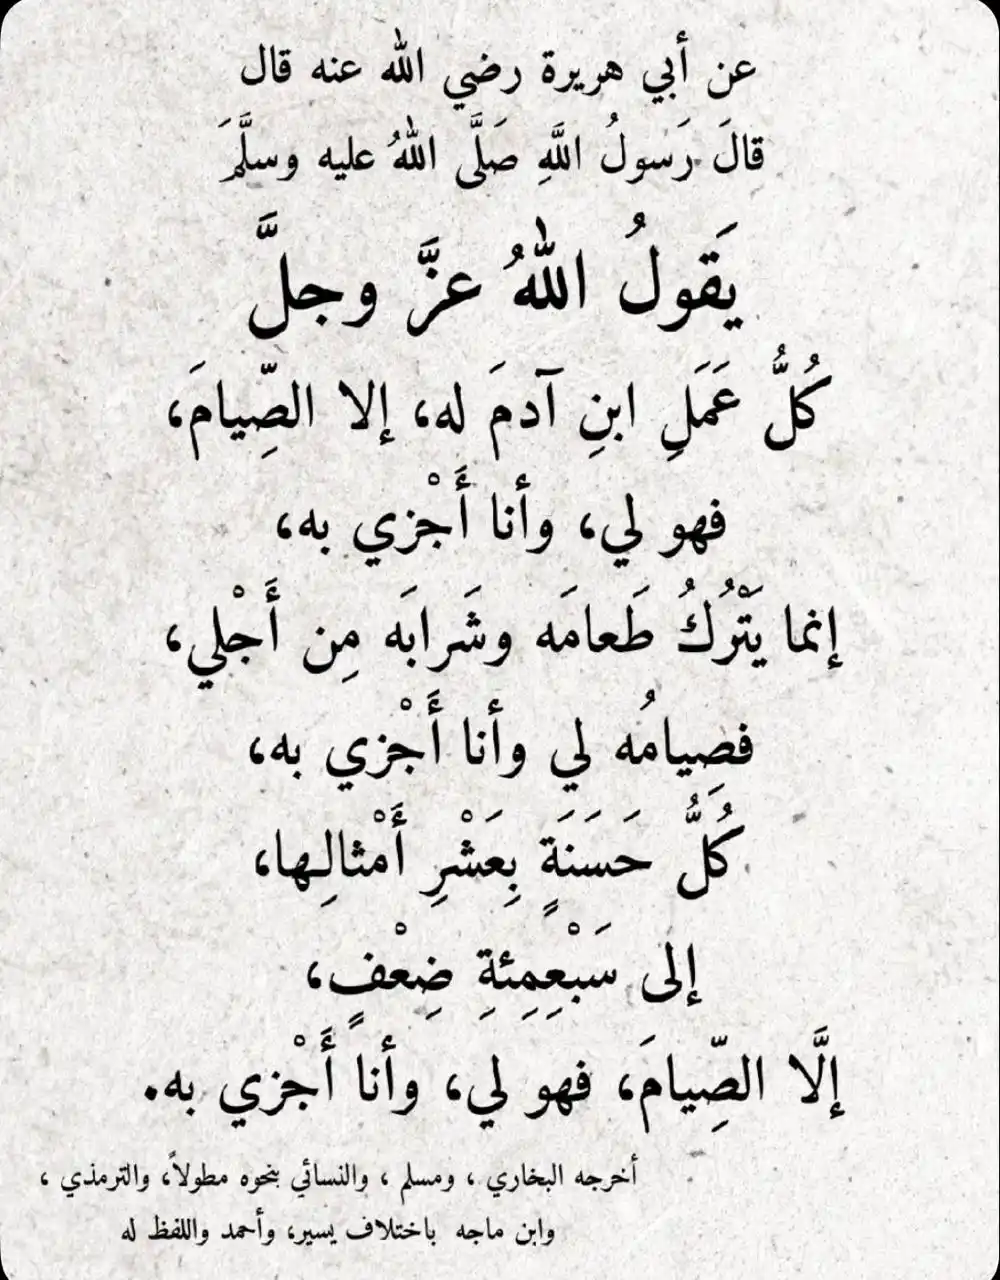 عن أبي هريرة رضي الله عنه قال
قالَ رَسولُ اللَّهِ صَلَّى اللهُ عليه وسلَّمَ
يَقولُ اللهُ عزَّ وجلَّ
كُلُّ عَمَلِ ابنِ آدمَ له، إلا الصِّيامَ،
فهو لي، وأنا أَجْزي به،
إنما يَتْرُكُ طَعامَه وشَرابَه مِن أَجْلي،
فصِيامُه لي وأنا أَجْزي به،
كُلُّ حَسَنَةٍ بِعَشْرِ أَمْثالِها،
إلى سَبْعِمِئةِ ضِعْفٍ،
إلَّا الصِّيامَ، فهو لي، وأنا أَجْزي به.
أخرجه البخاري ، ومسلم ، والنسائي بنحوه مطولاً، والترمذي ،
وابن ماجه باختلاف يسير، وأحمد واللفظ له